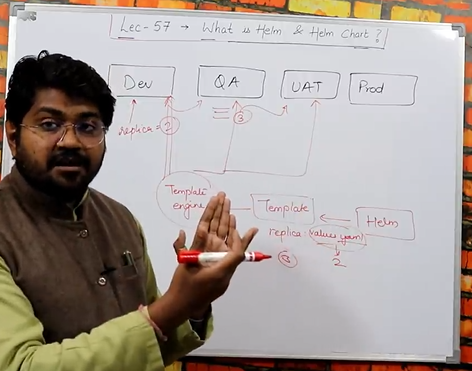 Lec-57 → What is Helm & Helm Chart?
Dev QA UAT Prod
replica = 2 3
Template engine
Template
Helm
replica: values.yaml
3 2